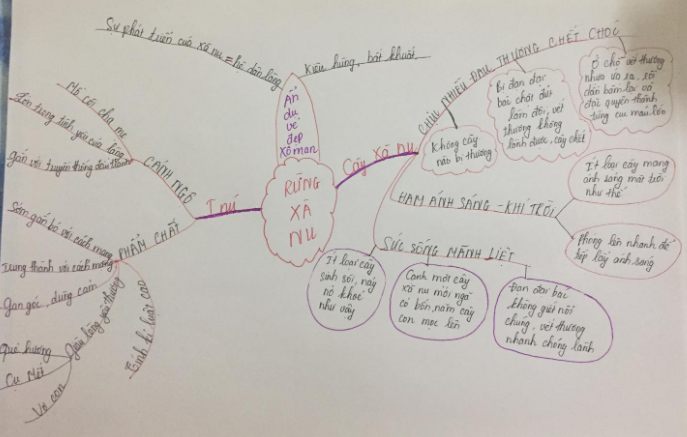 RỪNG
XÀ
NU
Ẩn
dụ
vẻ
đẹp
Xôman
Sự phát triển của xà nu = hệ dân làng
Kiêu hùng, bất khuất
Cây Xà nu
CHỊU NHIỀU ĐAU THƯƠNG CHẾT CHÓC
Không cây
nào bị thương
Bị đạn đại
bác chặt đứt
làm đôi, vết
thương không
lành được, cây chết
Ở chỗ vết thương
nhựa ứa ra, rồi
dần bầm lại và
đặc quyện thành
từng cục máu lớn
HAM ÁNH SÁNG - KHÍ TRỜI
Ít loại cây mang
ánh sáng mặt trời
như thế
Phóng lên nhanh để
tiếp lấy ánh sáng
SỨC SỐNG MÃNH LIỆT
Ít loại cây
sinh sôi, nảy
nở khoẻ
như vậy
Cạnh một cây
xà nu mới ngã
có bốn, năm cây
con mọc lên
Đạn đại bác
không giết nổi
chúng, vết thương
nhanh chóng lành
Tnú
CẢNH NGỘ
Mồ côi cha mẹ
Lớn trong tình yêu của làng
gắn với truyền thống
PHẨM CHẤT
Sớm gắn bó với cách mạng
Trung thành với cách mạng
Gan góc, dũng cảm
Giàu lòng yêu thương
Quê hương
Cụ Mết
Vợ con
Tính kỉ luật cao